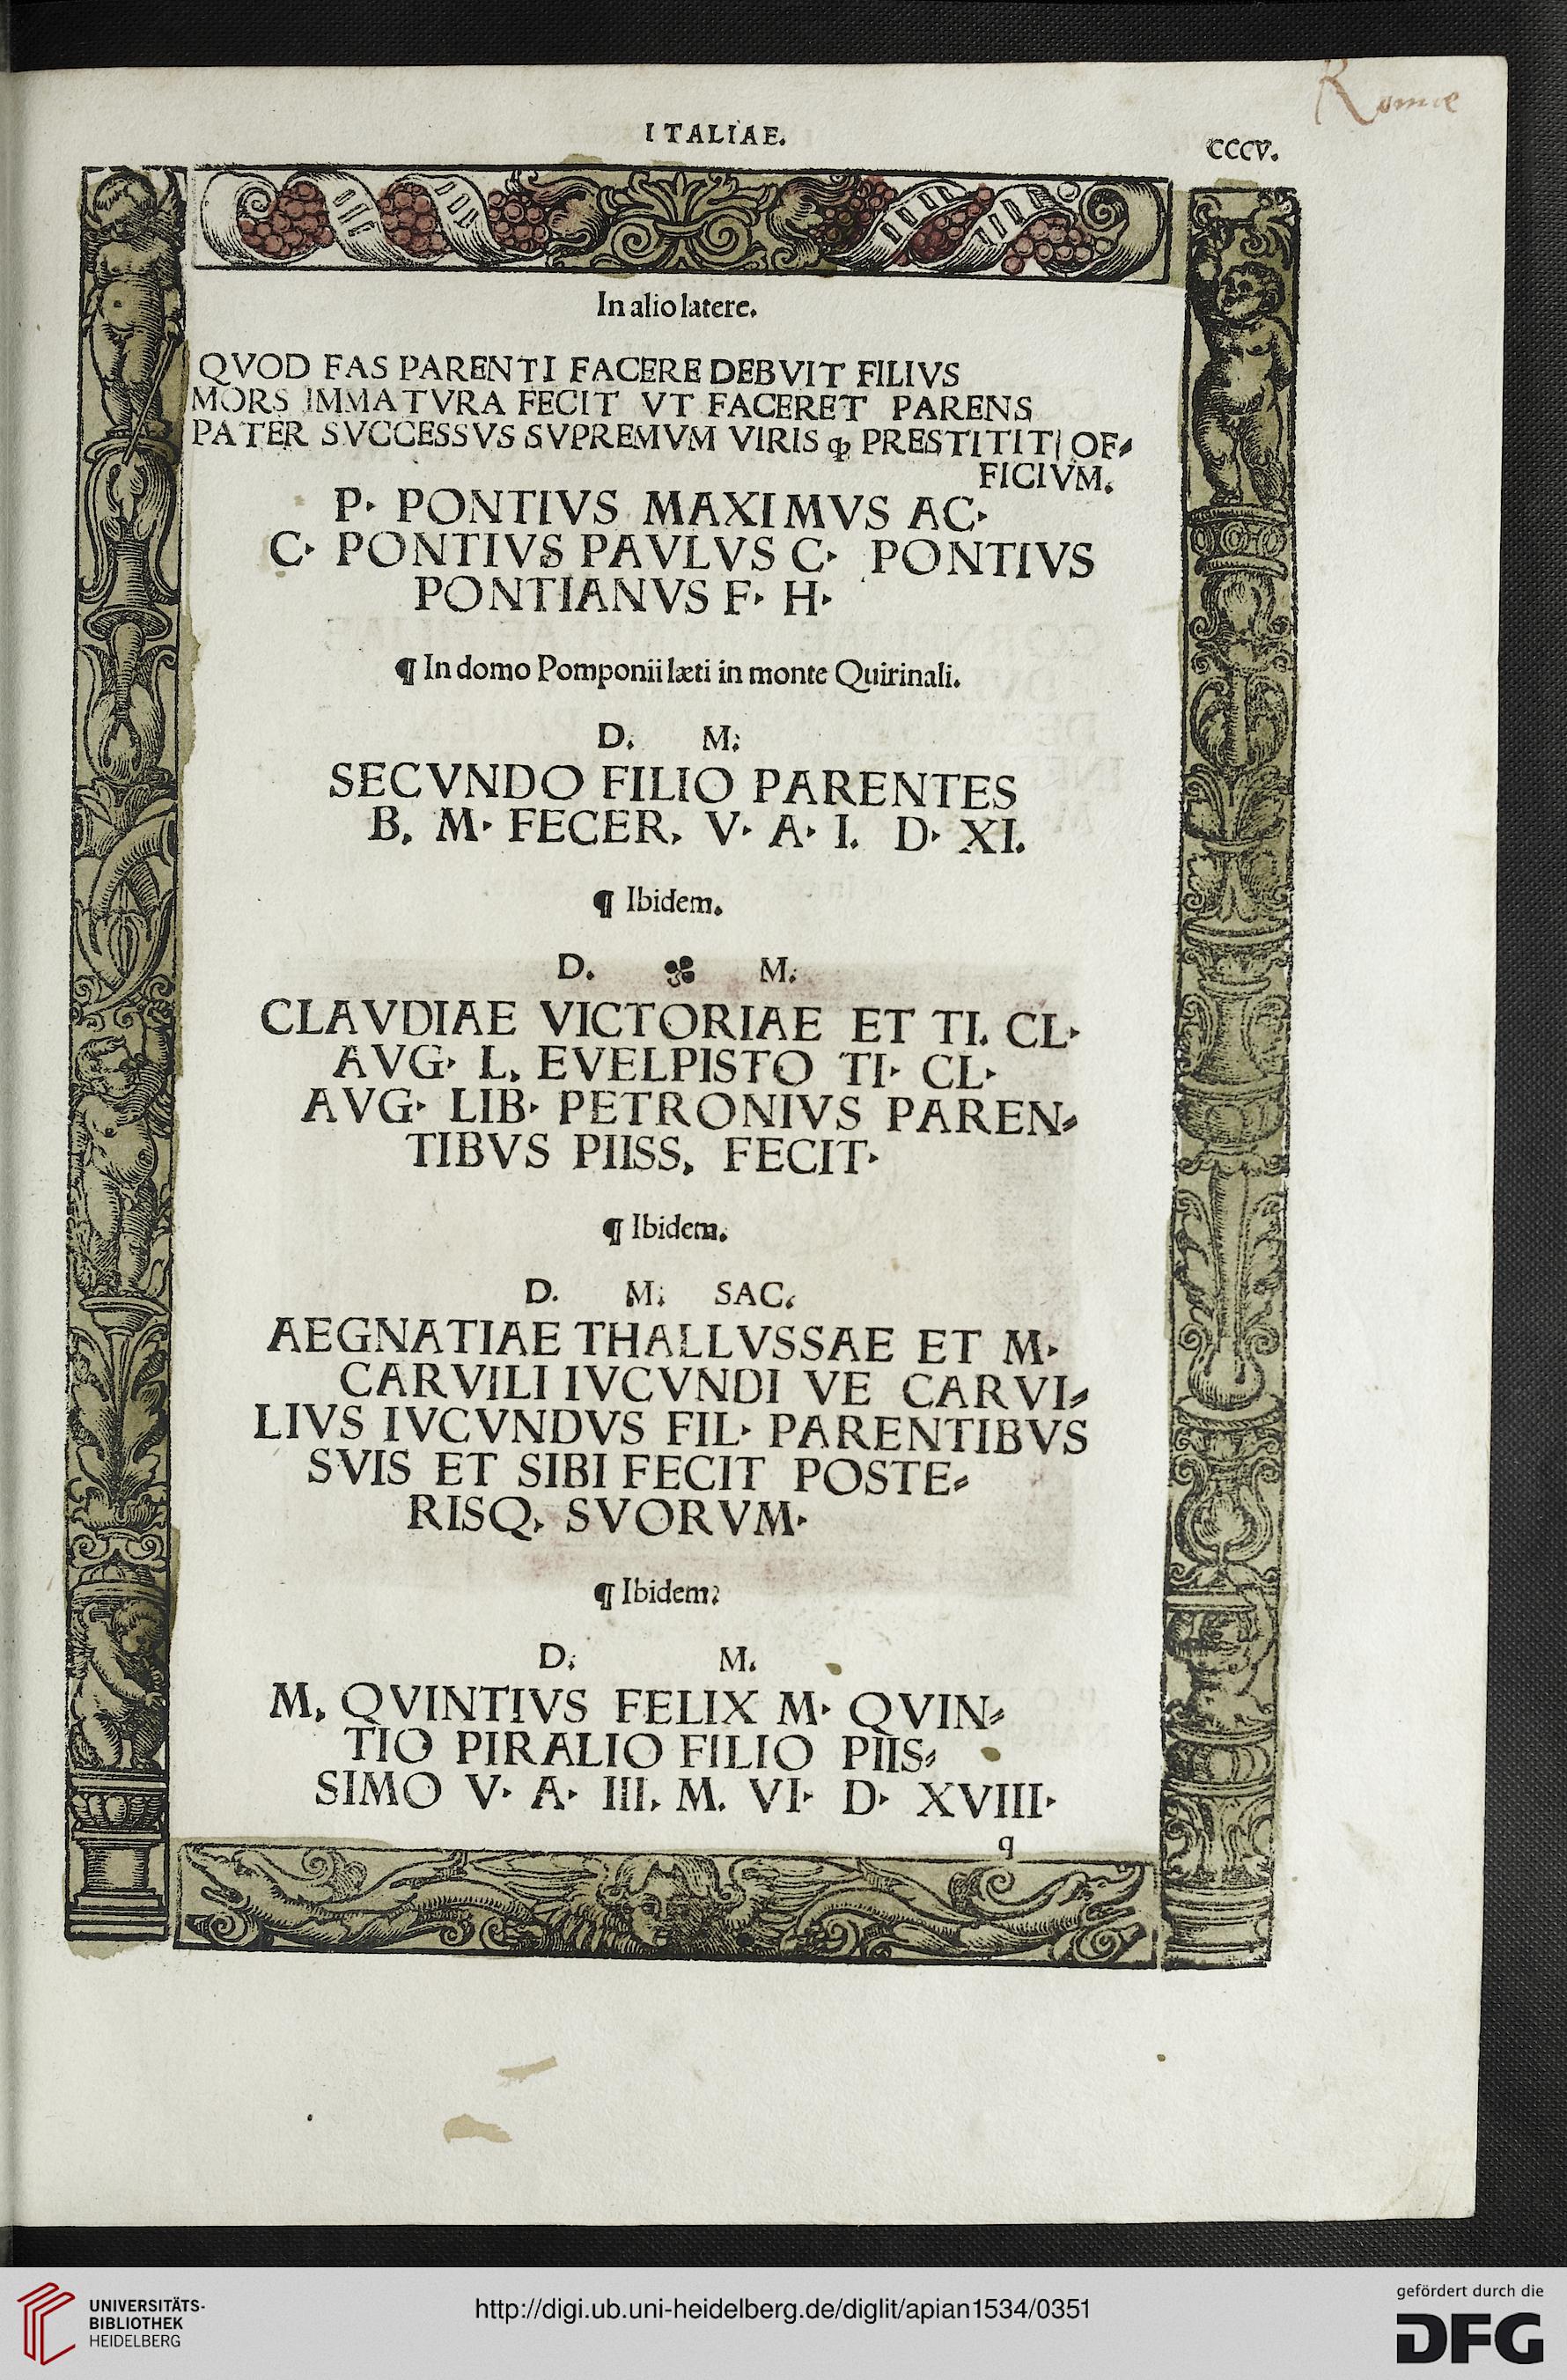 Romæ
ITALIAE.
CCCV.
In alio latere.
QVOD FAS PARENTI FACERE DEBVIT FILIVS
MORS IMMATVRA FECIT VT FACERET PARENS
PATER SVCCESSVS SVPREMVM VIRIS ꝙ PRESTITIT OF⸗
FICIVM.
P. PONTIVS MAXIMVS AC.
C. PONTIVS PAVLVS C. PONTIVS
PONTIANVS F. H.
¶ In domo Pomponii læti in monte Quirinali.
D. M.
SECVNDO FILIO PARENTES
B. M. FECER. V. A. I. D. XI.
¶ Ibidem.
D. M.
CLAVDIAE VICTORIAE ET TI. CL.
AVG. L. EVELPISTO TI. CL.
AVG. LIB. PETRONIVS PAREN⸗
TIBVS PIISS. FECIT.
¶ Ibidem.
D. M. SAC.
AEGNATIAE THALLVSSAE ET M.
CARVILI IVCVNDI VE CARVI⸗
LIVS IVCVNDVS FIL. PARENTIBVS
SVIS ET SIBI FECIT POSTE⸗
RISQ. SVORVM.
¶ Ibidem.
D. M.
M. QVINTIVS FELIX M. QVIN⸗
TIO PIRALIO FILIO PIIS⸗
SIMO V. A. III. M. VI. D. XVIII.
q
UNIVERSITÄTS-
BIBLIOTHEK
HEIDELBERG
http://digi.ub.uni-heidelberg.de/diglit/apian1534/0351
gefördert durch die
DFG